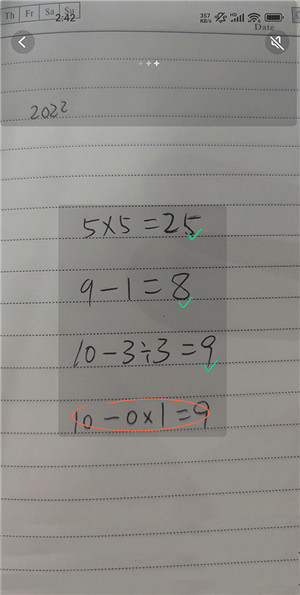 Th Fr Sa Su
2:42
357 KB/s HD
Date
2022
5×5=25
9-1=8
10-3÷3=9
10-0×1=9